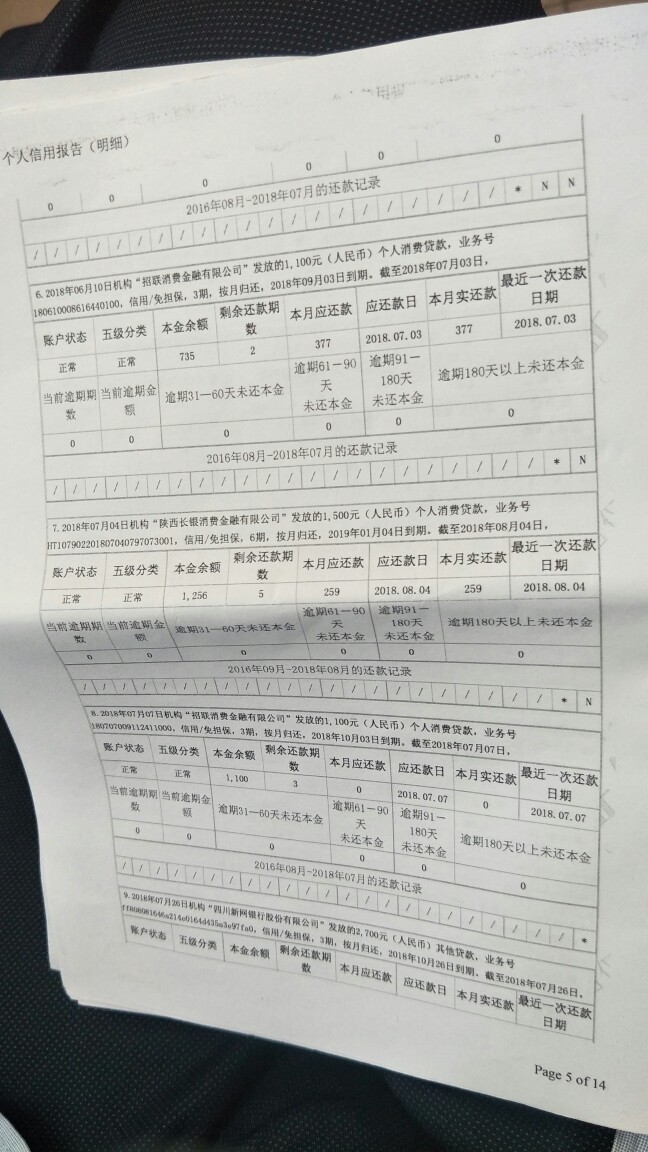 个人信用报告（明细）
0 0 0 0 0 0
2016年08月-2018年07月的还款记录
/ / / / / / / / / / / / / / / / / / / / / * N N
6.2018年06月10日机构“招联消费金融有限公司”发放的1,100元（人民币）个人消费贷款，业务号
180610008616440100，信用/免担保，3期，按月归还，2018年09月03日到期。截至2018年07月03日，
账户状态 五级分类 本金余额 剩余还款期数 本月应还款 应还款日 本月实还款 最近一次还款日期
正常 正常 735 2 377 2018.07.03 377 2018.07.03
当前逾期期数 当前逾期金额 逾期31—60天未还本金 逾期61－90天未还本金 逾期91－180天未还本金 逾期180天以上未还本金
0 0 0 0 0 0
2016年08月-2018年07月的还款记录
/ / / / / / / / / / / / / / / / / / / / / / * N
7.2018年07月04日机构“陕西长银消费金融有限公司”发放的1,500元（人民币）个人消费贷款，业务号
HT107902201807040797073001，信用/免担保，6期，按月归还，2019年01月04日到期。截至2018年08月04日，
账户状态 五级分类 本金余额 剩余还款期数 本月应还款 应还款日 本月实还款 最近一次还款日期
正常 正常 1,256 5 259 2018.08.04 259 2018.08.04
当前逾期期数 当前逾期金额 逾期31—60天未还本金 逾期61－90天未还本金 逾期91－180天未还本金 逾期180天以上未还本金
0 0 0 0 0 0
2016年09月-2018年08月的还款记录
/ / / / / / / / / / / / / / / / / / / / / / * N
8.2018年07月07日机构“招联消费金融有限公司”发放的1,100元（人民币）个人消费贷款，业务号
180707009112411000，信用/免担保，3期，按月归还，2018年10月03日到期。截至2018年07月07日，
账户状态 五级分类 本金余额 剩余还款期数 本月应还款 应还款日 本月实还款 最近一次还款日期
正常 正常 1,100 3 0 2018.07.07 0 2018.07.07
当前逾期期数 当前逾期金额 逾期31—60天未还本金 逾期61－90天未还本金 逾期91－180天未还本金 逾期180天以上未还本金
0 0 0 0 0 0
2016年08月-2018年07月的还款记录
/ / / / / / / / / / / / / / / / / / / / / / / *
9.2018年07月26日机构“四川新网银行股份有限公司”发放的2,700元（人民币）其他贷款，业务号
信用/免担保，3期，按月归还，2018年10月26日到期。截至2018年07月26日，
账户状态 五级分类 本金余额 剩余还款期数 本月应还款 应还款日 本月实还款 最近一次还款日期
Page 5 of 14